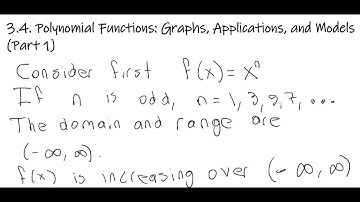 3.4. Polynomial Functions: Graphs, Applications, and Models
(Part 1)
Consider first f(x) = xⁿ
If n is odd, n = 1, 3, 9, 7, ...
The domain and range are
(-∞, ∞).
f(x) is increasing over (-∞, ∞)